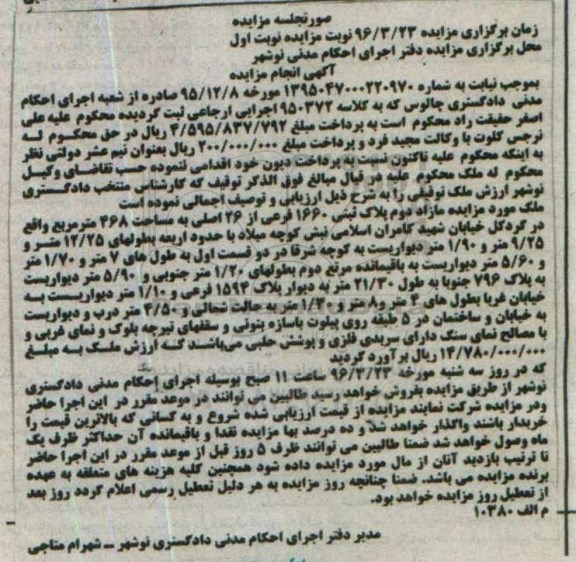 صورتجلسه مزایده
زمان برگزاری مزایده ۹۶/۳/۲۳ نوبت مزایده نوبت اول
محل برگزاری مزایده دفتر اجرای احکام مدنی نوشهر
آگهی انجام مزایده
بموجب نیابت به شماره ۱۳۹۵۰۴۷۰۰۰۲۲۰۹۷۰ مورخه ۹۵/۱۲/۸ صادره از شعبه اجرای احکام
مدنی دادگستری چالوس که به کلاسه ۹۵۰۳۷۲ اجرایی ارجاعی ثبت گردیده محکوم علیه علی
اصغر حقیقت راد محکوم است به پرداخت مبلغ ۴/۵۹۵/۸۳۷/۷۹۲ ریال در حق محکوم له
نرجس کلوت با وکالت مجید فرد و پرداخت مبلغ ۲۰۰/۰۰۰/۰۰۰ ریال بعنوان نیم عشر دولتی نظر
به اینکه محکوم علیه تاکنون نسبت به پرداخت دیون خود اقدامی ننموده حسب تقاضای وکیل
محکوم له ملک محکوم علیه در قبال مبالغ فوق الذکر توقیف که کارشناس منتخب دادگستری
نوشهر ارزش ملک توقیفی را به شرح ذیل ارزیابی و توصیف اجمالی نموده است
ملک مورد مزایده مازاد دوم پلاک ثبتی ۱۶۶۰ فرعی از ۲۶ اصلی به مساحت ۴۶۸ مترمربع واقع
در گردکل خیابان شهید کامران اسلامی نبش کوچه میلاد با حدود اربعه بطولهای ۱۲/۲۵ متر و
۹/۲۵ متر و ۱/۹۰ متر دیواریست به کوچه شرقا در دو قسمت اول به طول های ۷ متر و ۱/۷۰ متر
و ۵/۶۰ متر دیواریست به باقیمانده مرتع دوم بطولهای ۱/۲۰ متر جنوبی و ۵/۹۰ متر دیواریست
به پلاک ۷۹۶ جنوبا به طول ۲۱/۳۰ متر به دیوار پلاک ۱۵۹۴ فرعی و ۱/۱۰ متر دیواریست به
خیابان غربا بطول های ۴ متر و ۸ متر و ۱/۳۰ متر به حالت شمالی و ۳/۵۰ متر درب و دیواریست
به خیابان و ساختمان در ۵ طبقه روی پیلوت باسازه بتونی و سقفهای تیرچه بلوک و نمای غربی و
با مصالح نمای سنگ دارای سربندی فلزی و پوشش حلبی می‌باشند که ارزش ملک به مبلغ
۱۴/۷۸۰/۰۰۰/۰۰۰ ریال برآورد گردید
که در روز سه شنبه مورخه ۹۶/۳/۲۳ ساعت ۱۱ صبح بوسیله اجرای احکام مدنی دادگستری
نوشهر از طریق مزایده بفروش خواهد رسید طالبین می توانند در موعد مقرر در این اجرا حاضر
ودر مزایده شرکت نمایند مزایده از قیمت ارزیابی شده شروع و به کسانی که بالاترین قیمت را
خریدار باشند واگذار خواهد شد و ده درصد بها مزایده نقدا و باقیمانده آن حداکثر ظرف یک
ماه وصول خواهد شد ضمنا طالبین می توانند ظرف ۵ روز قبل از موعد مقرر در این اجرا حاضر
تا ترتیب بازدید آنان از مال مورد مزایده داده شود همچنین کلیه هزینه های متعلقه به عهده
برنده مزایده می باشد. ضمنا چنانچه روز مزایده به هر دلیل تعطیل رسمی اعلام گردد روز بعد
از تعطیل روز مزایده خواهد بود.
م الف ۱۰۳۸۰
مدیر دفتر اجرای احکام مدنی دادگستری نوشهر – شهرام متاجی